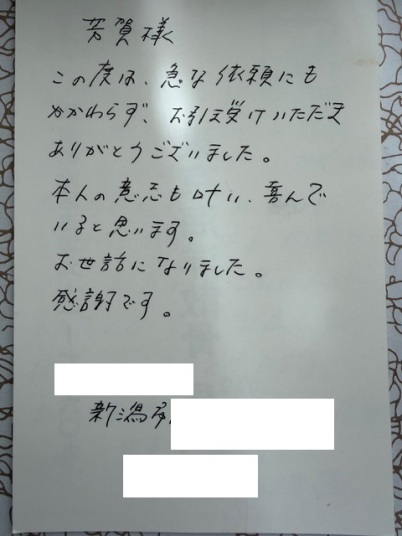 芳賀様
この度は、急な依頼にも
かかわらず、お引き受けいただき
ありがとうございました。
本人の意志も叶い、喜んで
いると思います。
お世話になりました。
感謝です。
新潟市